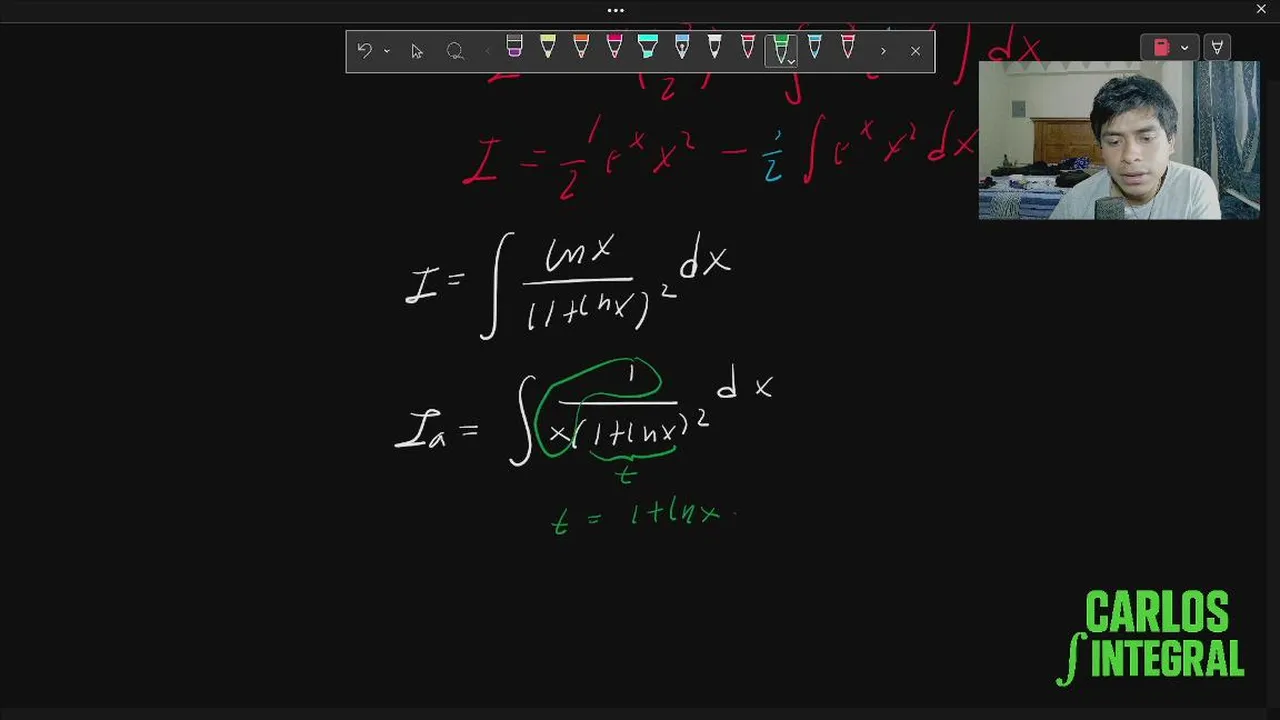 I = 1/2 e^x x^2 - 1/2 ∫ e^x x^2 dx
I = ∫ lnx/(1+lnx)^2 dx
I_a = ∫ 1/x(1+lnx)^2 dx
t
t = 1+lnx
CARLOS
∫ INTEGRAL